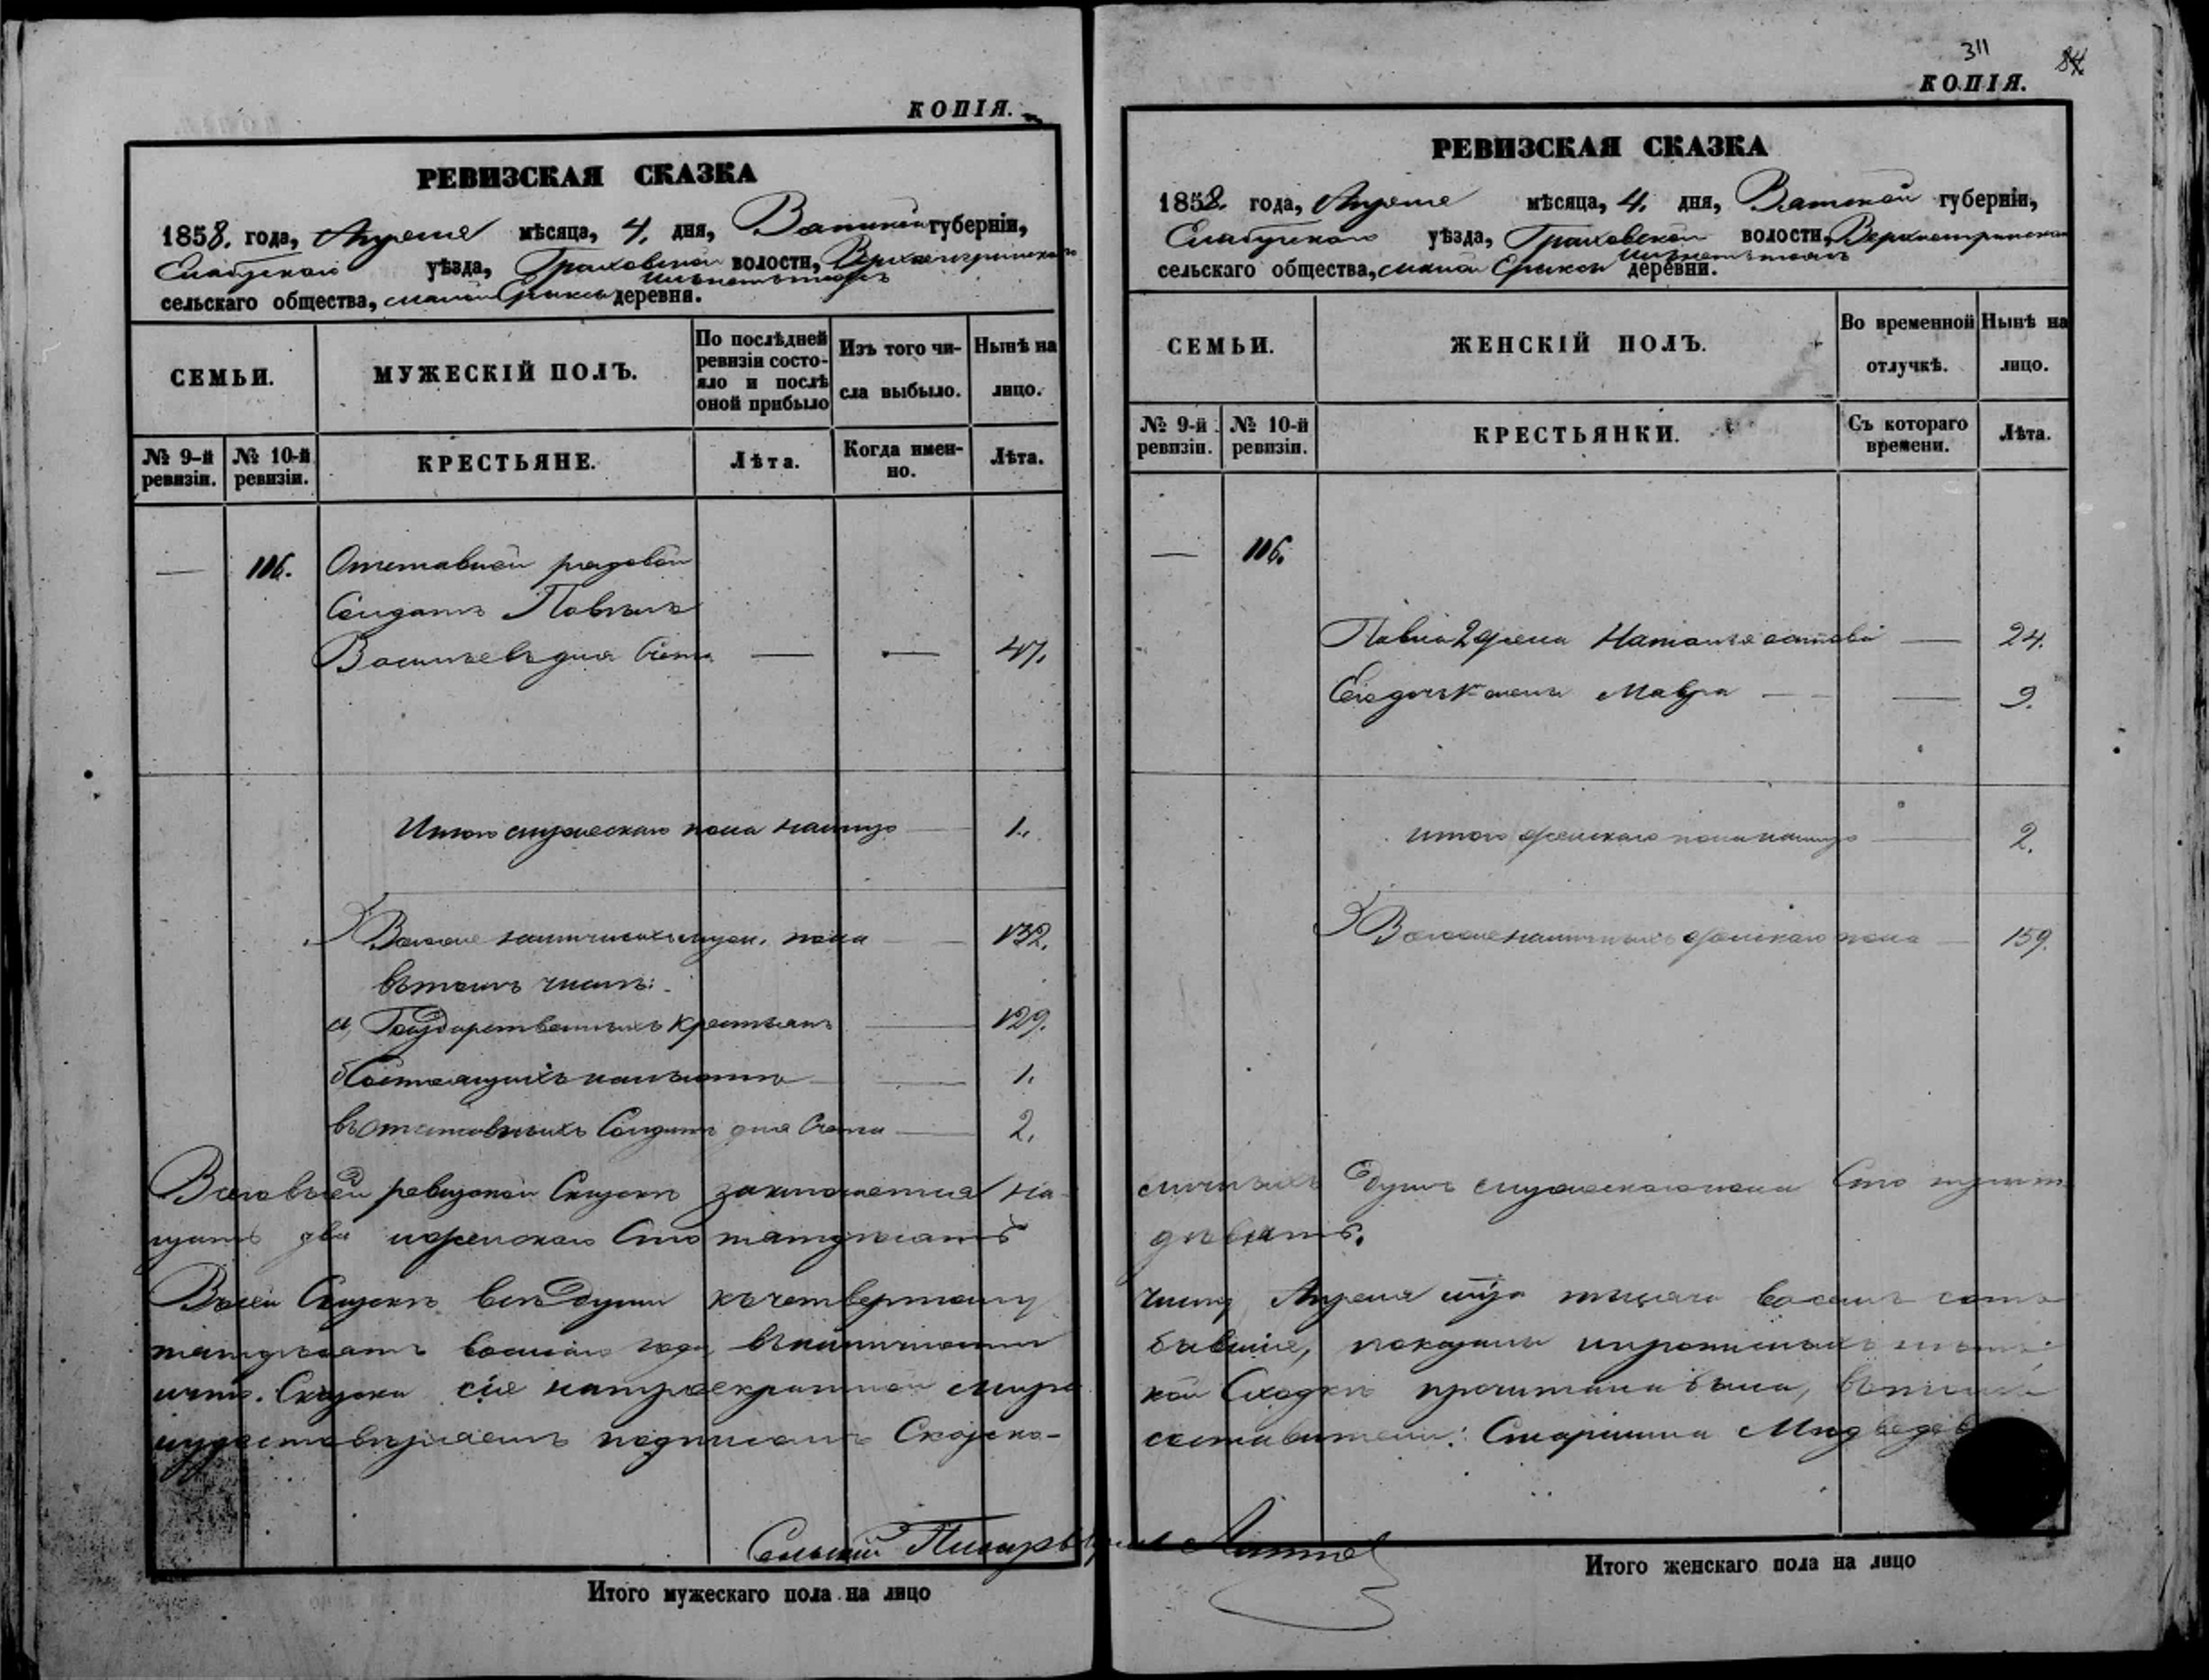 КОПІЯ.
РЕВИЗСКАЯ СКАЗКА
1858. года, Апреля мѣсяца, 4. дня, Вятской губерніи,
Елабугскаго уѣзда, Граховской волости,
сельскаго общества, малой деревня.
СЕМЬИ.
МУЖЕСКІЙ ПОЛЪ.
По послѣдней ревизіи состояло и послѣ оной прибыло
Изъ того числа выбыло.
Нынѣ на лицо.
№ 9-й ревизіи.
№ 10-й ревизіи.
КРЕСТЬЯНЕ.
Лѣта.
Когда именно.
Лѣта.
— 116. Отставной рядовой
Солдатъ Павелъ
Васильевъ для счета — — 47.
Итого мужескаго пола налицо — 1.
Всего наличныхъ муж. пола — 132.
въ томъ числѣ:
а, Государственныхъ крестьянъ — 129.
б, — 1.
в, отставныхъ Солдатъ для Счета — 2.
Всего въ сей ревизской Сказкѣ заключается на-
цать два и женскаго Сто пятдесятъ
Въ сей Сказкѣ всѣ души къ четвертому
пятдесятъ восьмаго года, въ наличности
Сказка сія на мірс-
подписомъ Сказко-
Сельскій Писарь
Итого мужескаго пола на лицо
311
84
КОПІЯ.
РЕВИЗСКАЯ СКАЗКА
1858. года, Апреля мѣсяца, 4. дня, Вятской губерніи,
Елабугскаго уѣзда, Граховской волости,
сельскаго общества, малой деревни.
СЕМЬИ.
ЖЕНСКІЙ ПОЛЪ.
Во временной отлучкѣ.
Нынѣ на лицо.
№ 9-й ревизіи.
№ 10-й ревизіи.
КРЕСТЬЯНКИ.
Съ котораго времени.
Лѣта.
— 116.
Павла жена Наталья — 24.
Его дочь Мавра — — 9.
итого женскаго пола налицо — 2.
Всего наличныхъ женскаго пола — 159.
личныхъ душъ мужескаго пола Сто трит-
девять.
числу Апреля тысяча восемь сотъ
бывшіе, показаны и
кой Сходкѣ прочитана была,
составители: Старшина Медведев
Итого женскаго пола на лицо